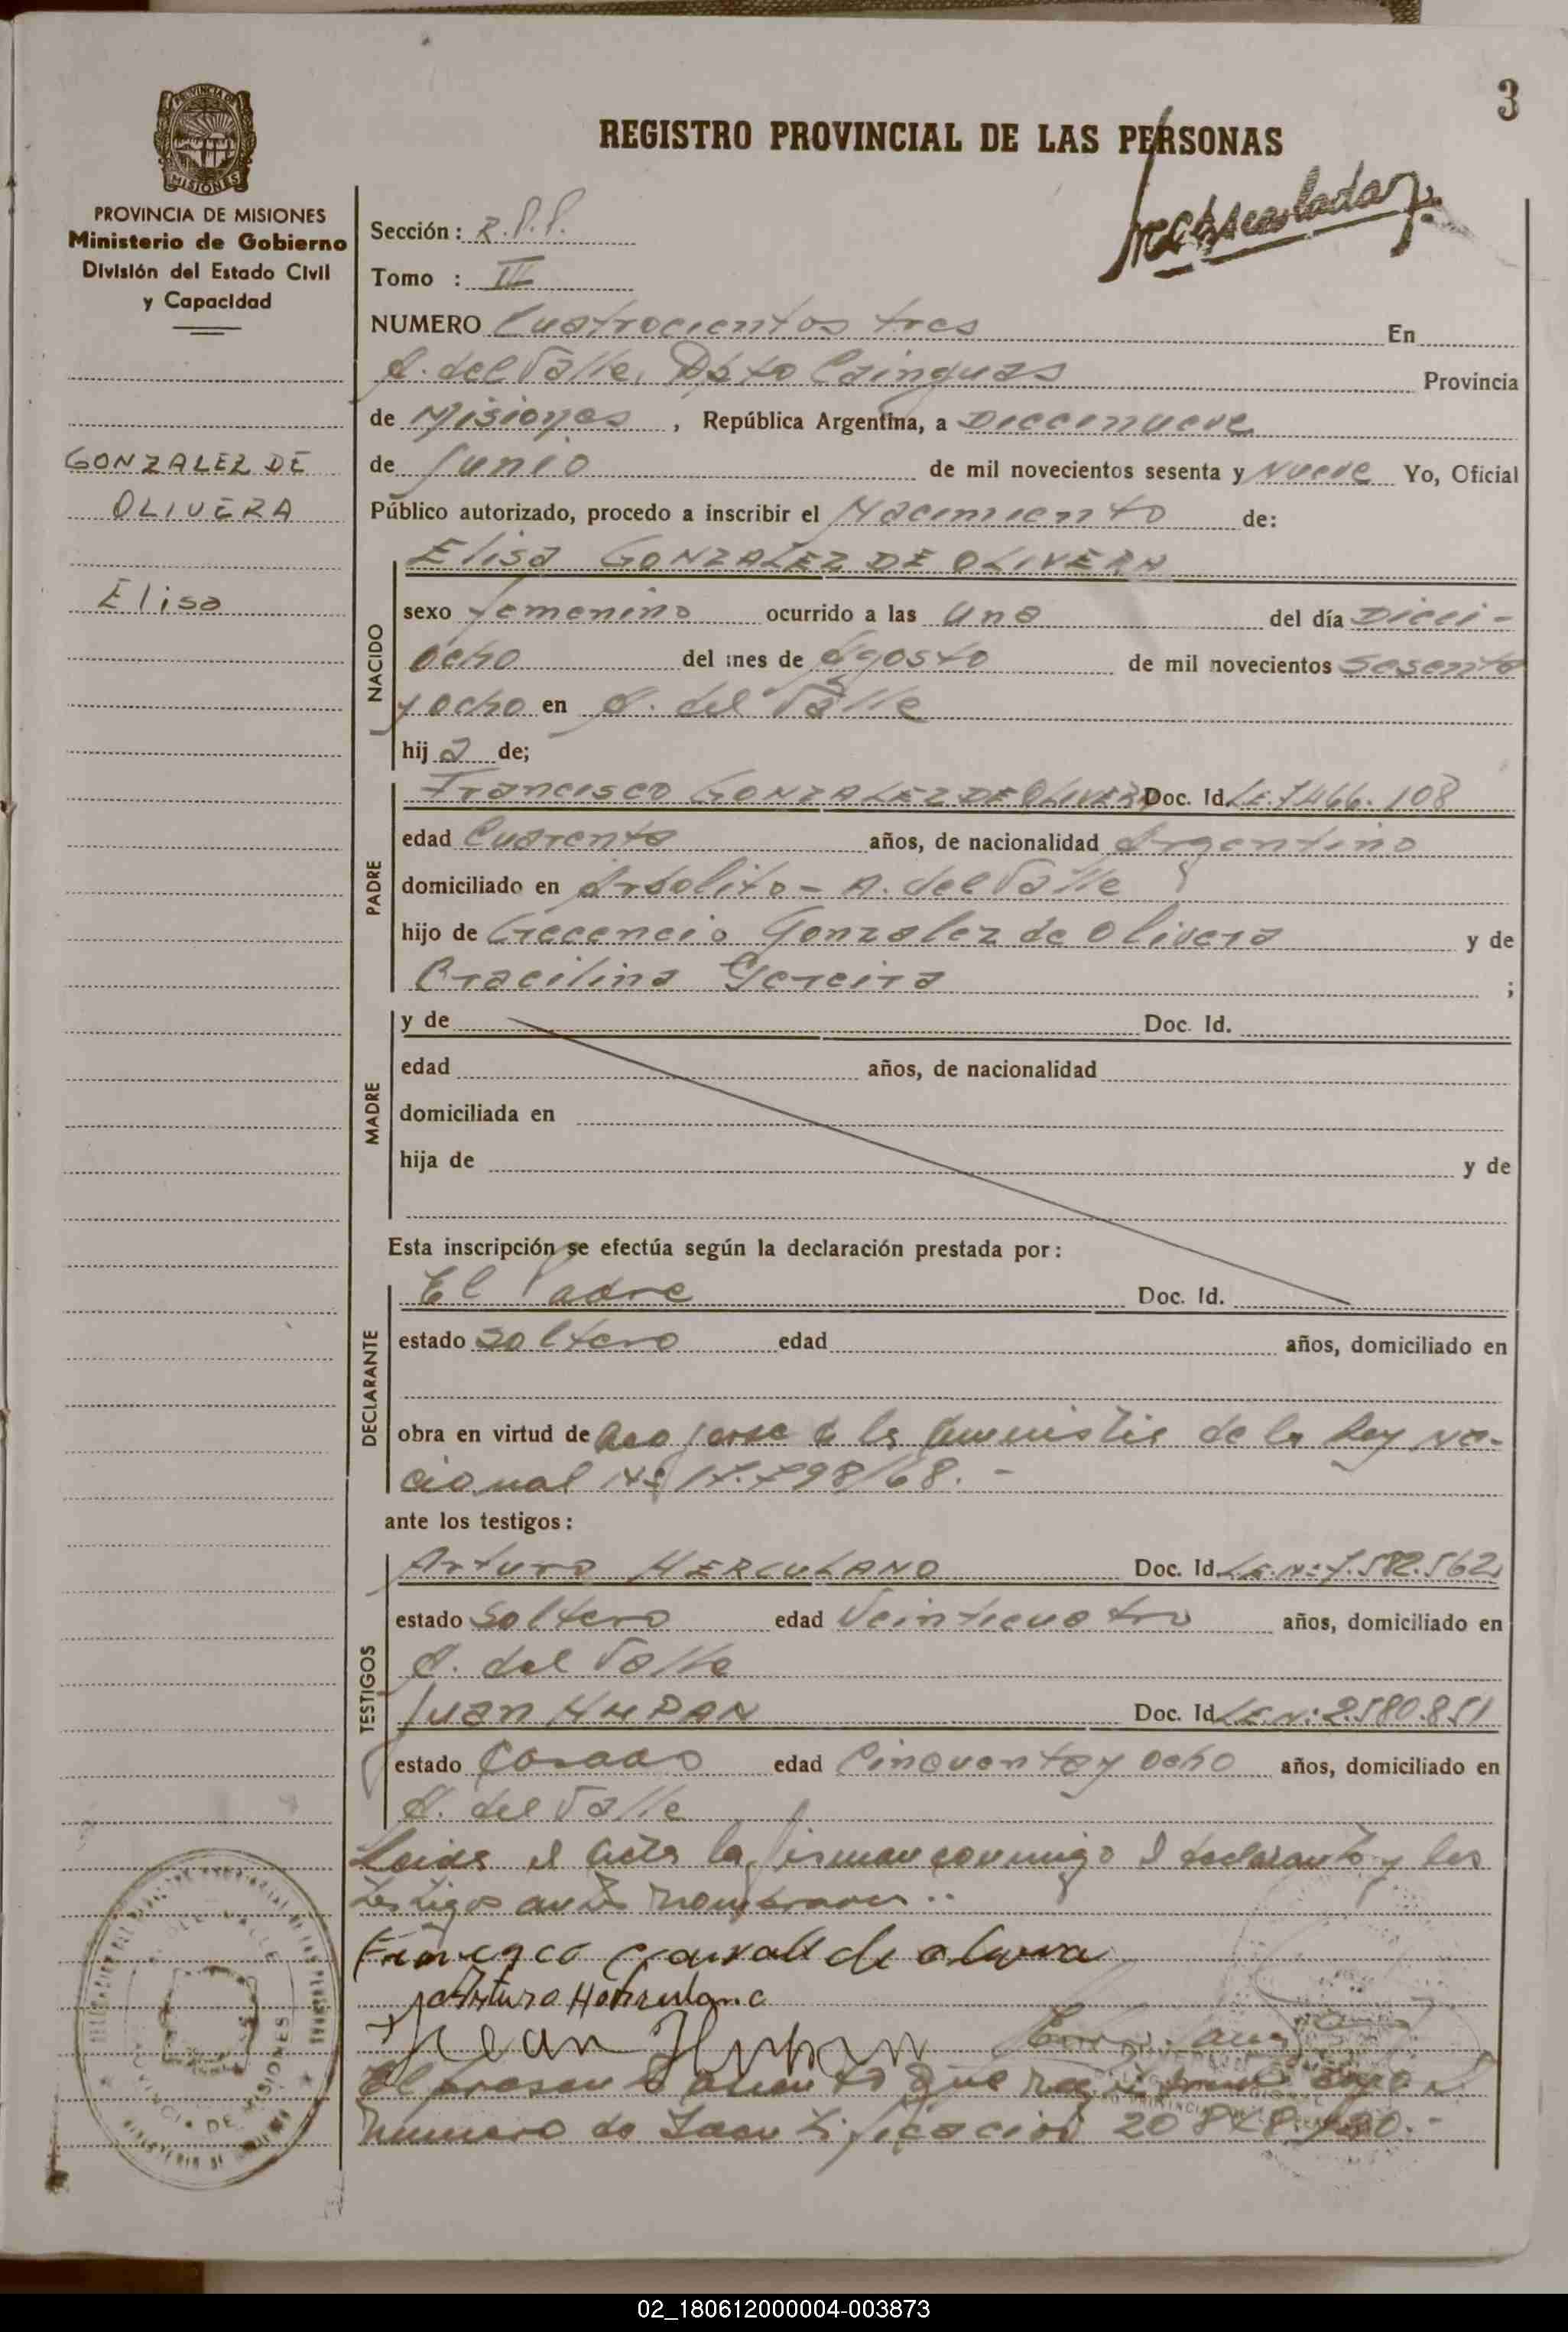 3
REGISTRO PROVINCIAL DE LAS PERSONAS
PROVINCIA DE MISIONES
Ministerio de Gobierno
División del Estado Civil
y Capacidad
GONZALEZ DE
OLIVERA
Elisa
Sección : R.P.P.
Tomo : III
NUMERO Cuatrocientos tres En
A. del Valle, Dpto Cainguas Provincia
de Misiones , República Argentina, a Diecinueve
de Junio de mil novecientos sesenta y Nueve Yo, Oficial
Público autorizado, procedo a inscribir el Nacimiento de:
NACIDO
Elisa GONZALEZ DE OLIVERA
sexo femenino ocurrido a las Una del día Dieci-
ocho del mes de Agosto de mil novecientos sesenta
y ocho en A. del Valle
hij a de;
PADRE
Francisco GONZALEZ DE OLIVERA Doc. Id. L.E. 7.466.108
edad Cuarenta años, de nacionalidad Argentino
domiciliado en - A. del Valle
hijo de Crecencio Gonzalez de Olivera y de
Pereira ;
MADRE
y de Doc. Id.
edad años, de nacionalidad
domiciliada en
hija de y de
Esta inscripción se efectúa según la declaración prestada por :
DECLARANTE
El Padre Doc. Id.
estado soltero edad años, domiciliado en
obra en virtud de acojerse a la amnistia de la Ley Na-
cional Nº 17.798/68.-
ante los testigos :
TESTIGOS
Arturo HERCULANO Doc. Id. L.E. Nº 7.582.562
estado Soltero edad Veinticuatro años, domiciliado en
A. del Valle
Juan HUPAN Doc. Id. L.E. Nº 2.580.851
estado Casado edad Cincuenta y ocho años, domiciliado en
A. del Valle
Leida el acta la firman conmigo el declarante y los
testigos antes nombrados..
de olivera
Arturo Herculano
Juan Hupan
El presente
numero de Identificacion
PROVINCIA DE MISIONES
02_180612000004-003873